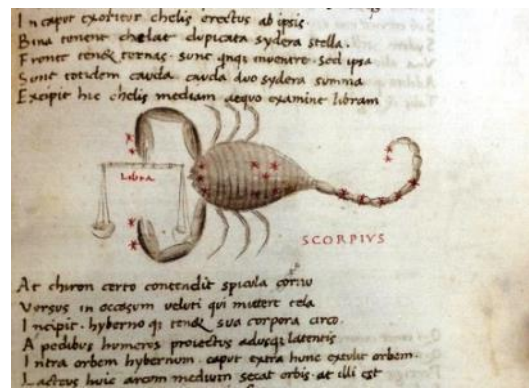 In caput exoritur chelis erectus ab ipsis
Bina tenent chelae duplicata sydera stella.
Fronte tenet ternas. sunt qnqi inventre. sed ipsa
Sunt totidem cauda. cauda duo sydera summa
Excipit hic chelis mediam aequo examine libram
LIBRA
SCORPIVS
At chiron certo contendit spicula cornu
Versus in occasum veluti qui mittere tela
Incipit. hyberno qi tenet sua corpora circo.
A pedibus humeros proiectus adusqi latentis
Intra orbem hybernum. caput extra hunc extulit orbem.
Lacteus huic arcum medium secat orbis. at illi est